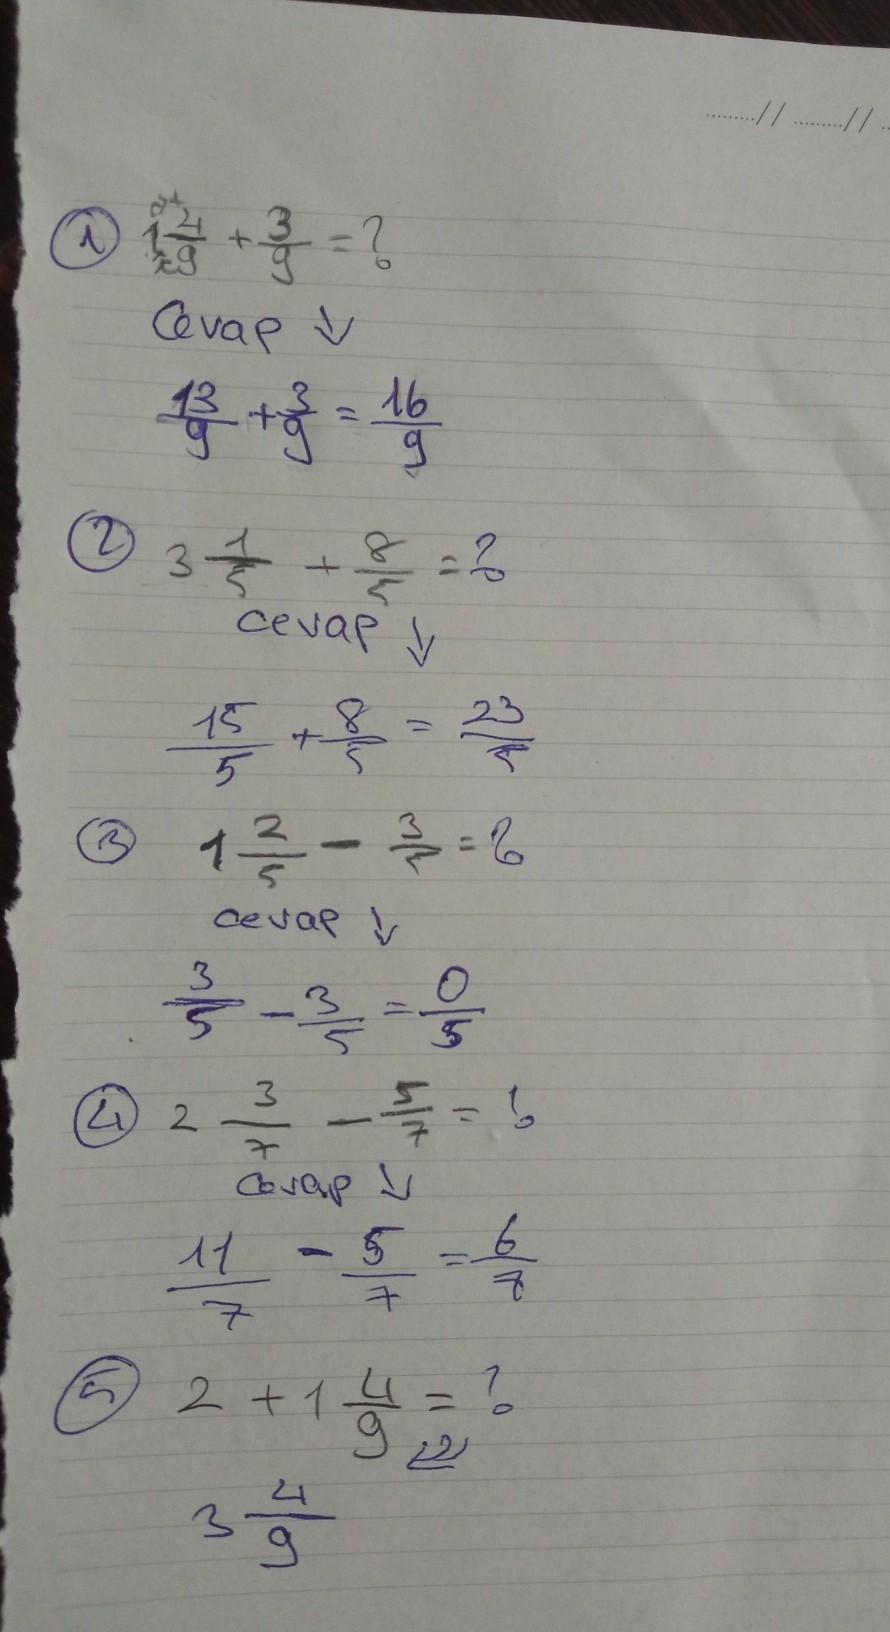 ......../ / ......../ / ..
① 1 4/9 + 3/9 = ?
Cevap ↓
13/9 + 3/9 = 16/9
② 3 1/5 + 8/5 = ?
cevap ↓
15/5 + 8/5 = 23/5
③ 1 2/5 - 3/5 = ?
cevap ↓
3/5 - 3/5 = 0/5
④ 2 3/7 - 5/7 = ?
cevap ↓
11/7 - 5/7 = 6/7
⑤ 2 + 1 4/9 = ?
3 4/9